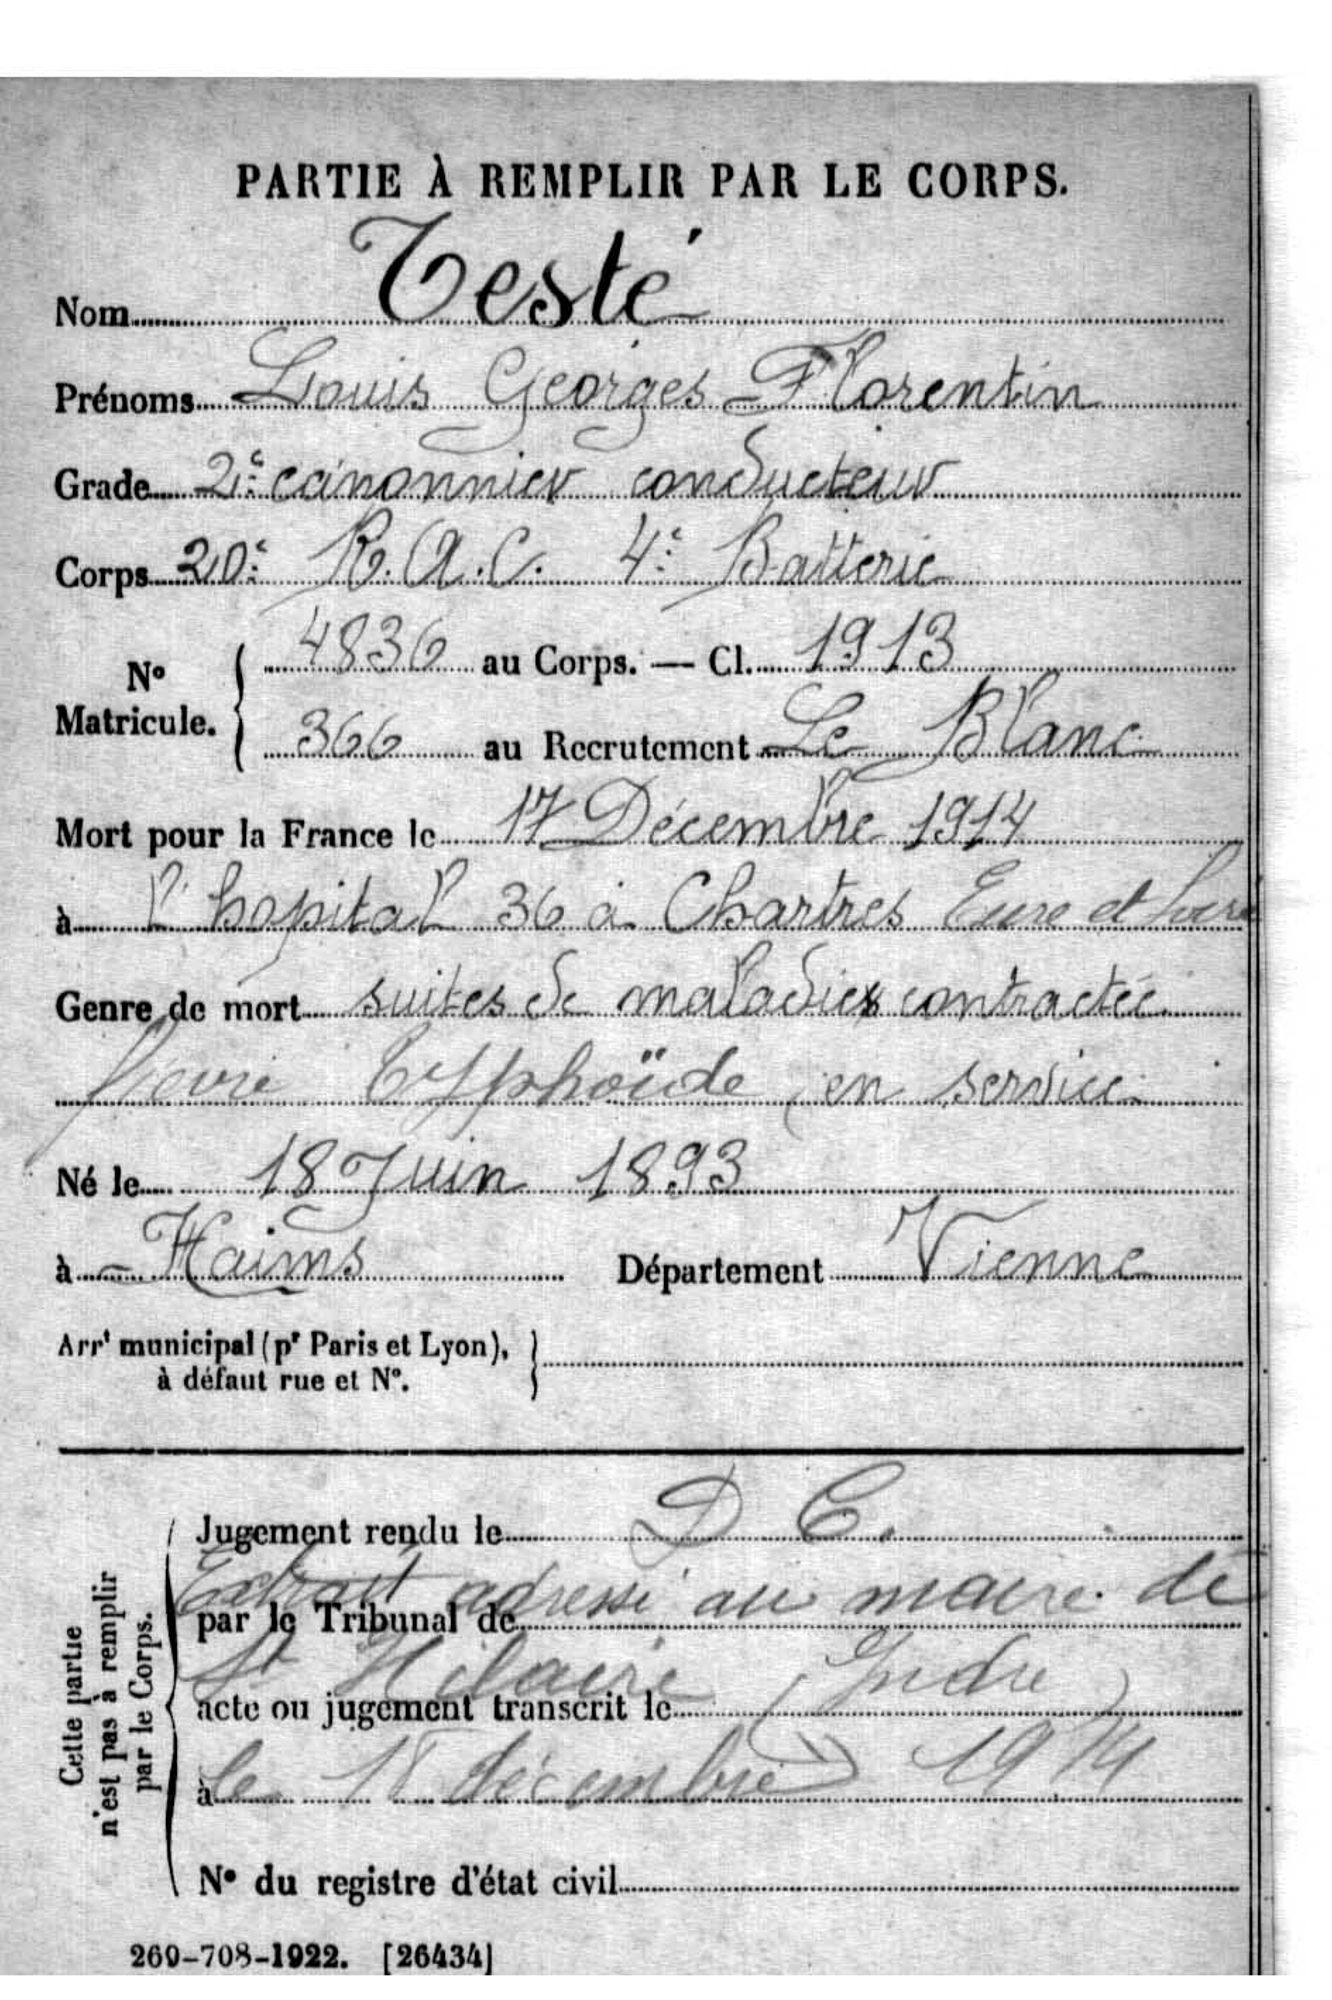 PARTIE À REMPLIR PAR LE CORPS.
Nom Testé
Prénoms Louis Georges Florentin
Grade 2e canonnier conducteur
Corps 20e R.A.C. 4e Batterie
No Matricule. { 4836 au Corps. — Cl. 1913
366 au Recrutement Le Blanc
Mort pour la France le 17 Décembre 1914
à l'hopital 36 à Chartres Eure et Loire
Genre de mort suites de maladie contractée
fievre Typhoïde en service
Né le 18 Juin 1893
à Haims Département Vienne
Arrt municipal (pr Paris et Lyon), }
à défaut rue et No.
Cette partie
n'est pas à remplir
par le Corps.
Jugement rendu le D C.
Extrait adressé au maire de
par le Tribunal de
St Hilaire (Indre)
acte ou jugement transcrit le
à le 18 décembre 1914
No du registre d'état civil
260-708-1922. [26434]